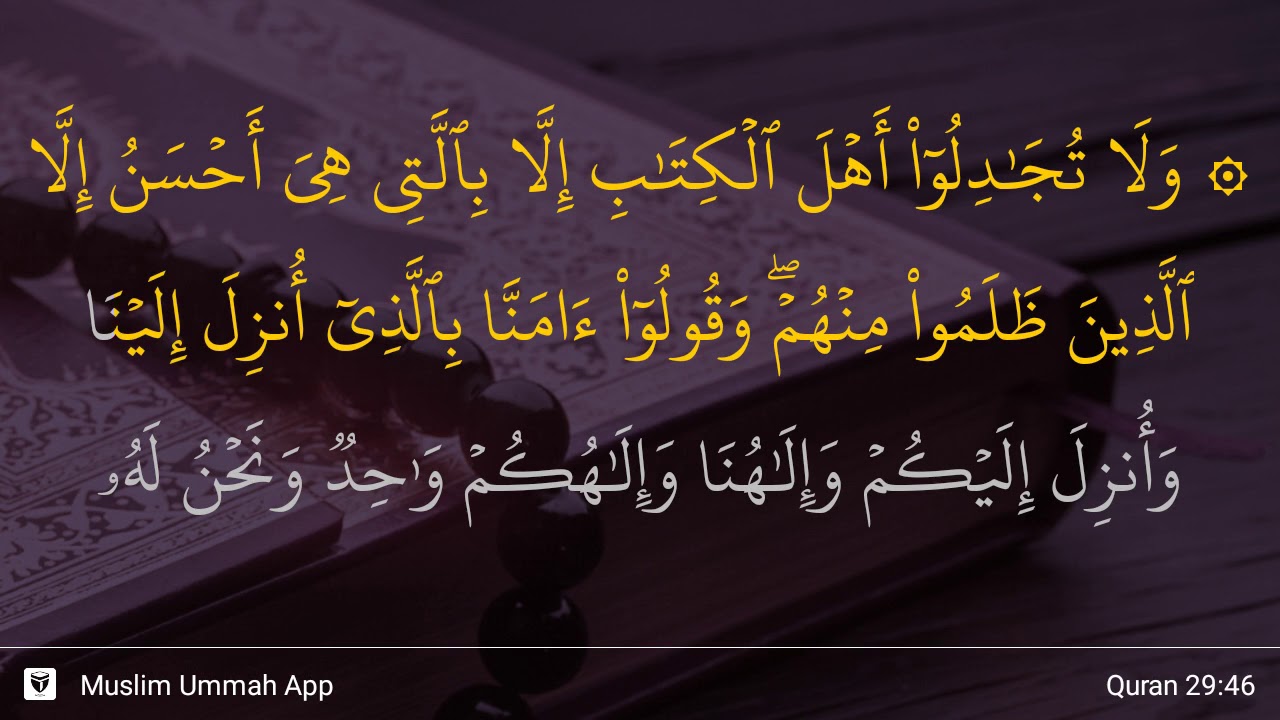 ۞ وَلَا تُجَـٰدِلُوٓا۟ أَهْلَ ٱلْكِتَـٰبِ إِلَّا بِٱلَّتِى هِىَ أَحْسَنُ إِلَّا
ٱلَّذِينَ ظَلَمُوا۟ مِنْهُمْ ۖ وَقُولُوٓا۟ ءَامَنَّا بِٱلَّذِىٓ أُنزِلَ إِلَيْنَا
وَأُنزِلَ إِلَيْكُمْ وَإِلَـٰهُنَا وَإِلَـٰهُكُمْ وَٰحِدٌ وَنَحْنُ لَهُۥ
Muslim Ummah App
Quran 29:46